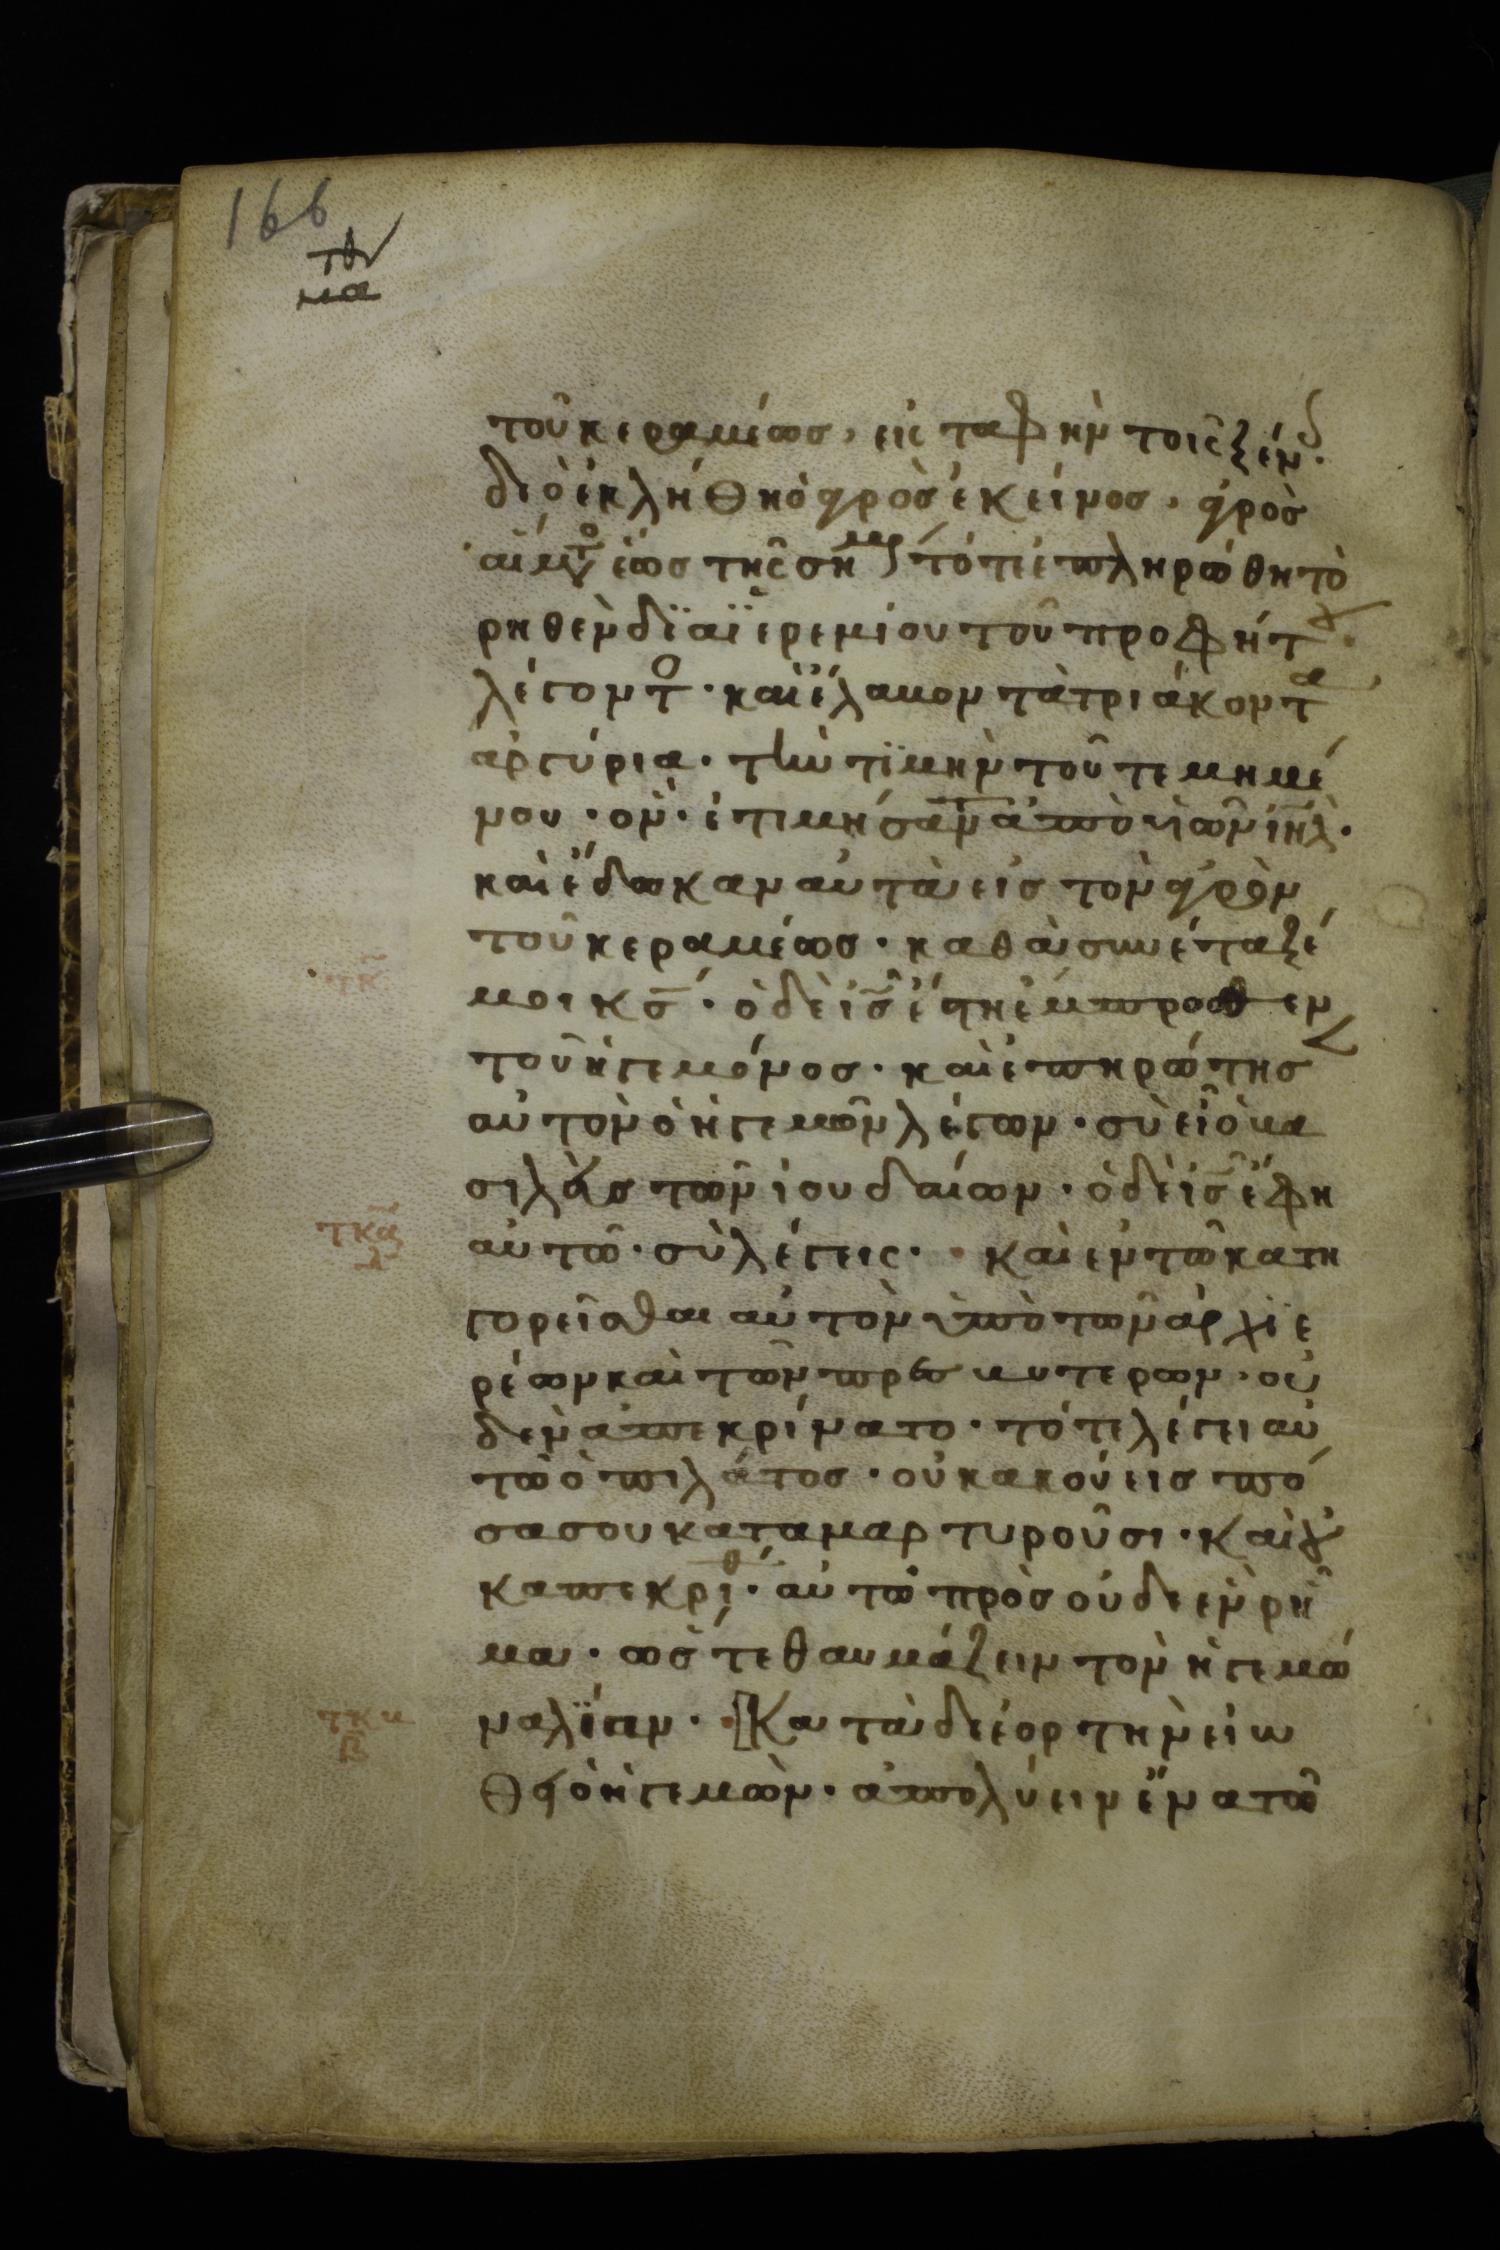 166
τοῦ κεραμέως, εἰς ταφὴν τοῖς ξέν
διὸ ἐκλήθη ὁ ἀγρὸς ἐκείνος, ἀγρὸς
αἵματο ἕως τῆς σημερ τότε ἐπληρώθη τὸ
ρηθὲν διὰ ϊερεμίου τοῦ προφήτου
λέγοντο · καὶ ἔλαβον τὰ τριάκοντα
ἀργύρια · τὴν τϊμὴν τοῦ τεμημέ
νου · ὃν · ἐτιμήσαντ ἀπὸ υἱῶν ιηλ ·
καὶ ἔδωκαν αὐτὰ εἰς τὸν ἀγρὸν
τοῦ κεραμέως · καθὰ συνέταξέ
τκ
μοι κς · ὁ δὲ ις ἔστη ἔμπροσθεν
τοῦ ἡγεμόνος · καὶ ἐπηρώτησ
αὐτὸν ὁ ἡγεμὼν λέγων · σὺ εἶ ὁ βα
σιλεὺς τῶν ἰουδαίων · ὁ δὲ ις ἔφη
τκα
αὐτῶ · σὺ λέγεις · καὶ ἐν τῶ κατη
δ
γορεῖσθαι αὐτὸν ὑπὸ τῶν ἀρχϊε
ρέων καὶ τῶν πρεσβυτερων · οὐ
δὲν ἀπεκρίνατο · τότε λέγει αὐ
τῶ ὁ πιλάτος · οὐκ ακούεις πό
σα σου καταμαρτυροῦσι · καὶ οὐ
κ απεκρίθ · αὐτῶ πρὸς οὐδὲ ἓν ρῆ
μα · ὥστε θαυμάζειν τὸν ἡγεμό
τκ
να λϊαν · Κατὰ δὲ ἑορτὴν εἰω
β
θει ὁ ἡγεμὼν · ἀπολύειν ἕνα τῶ